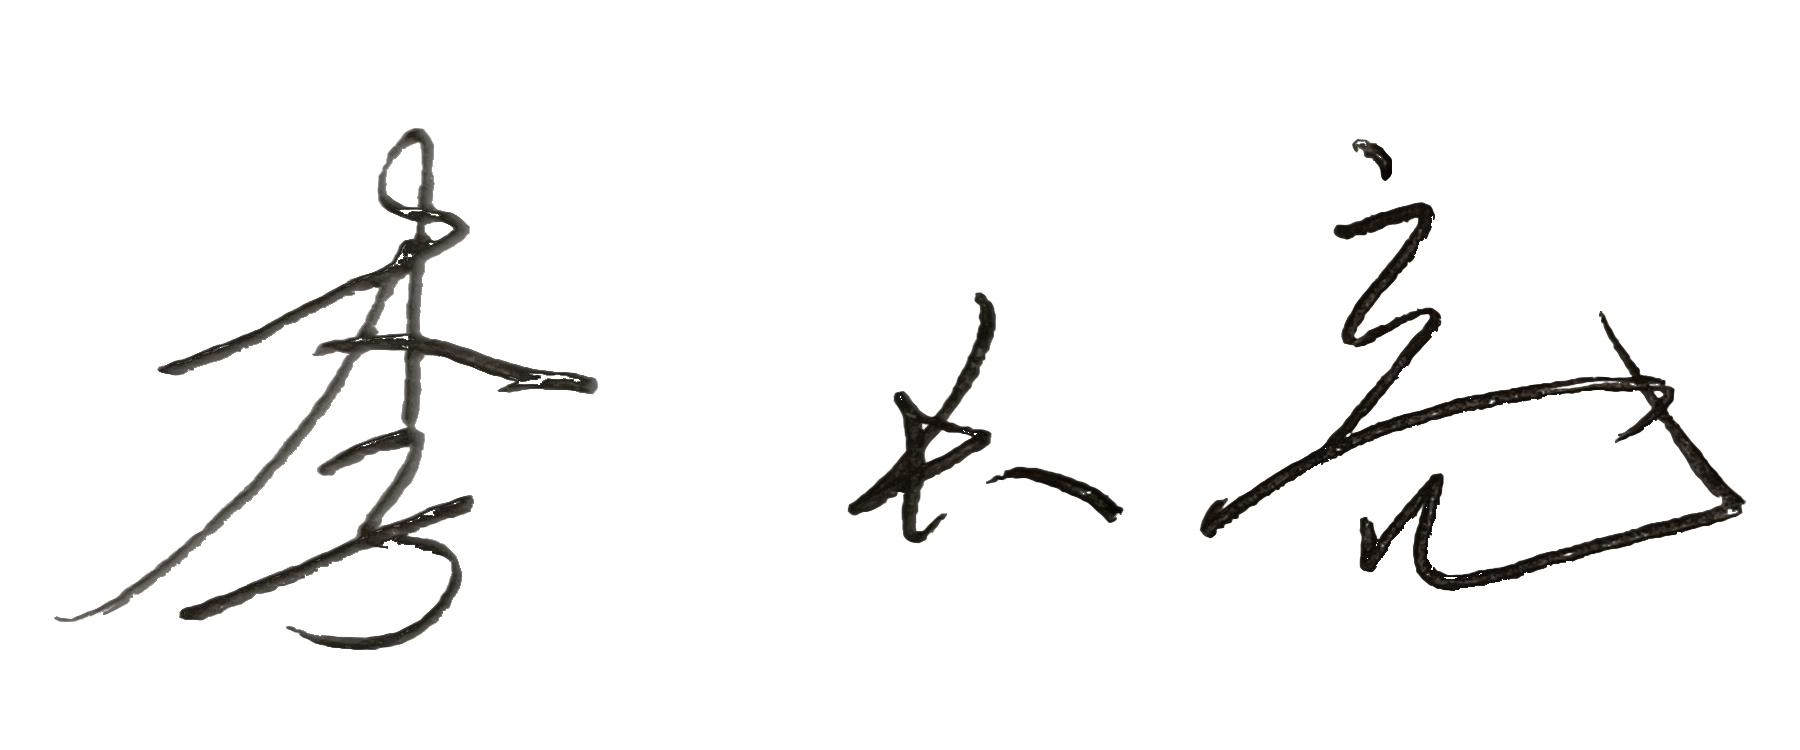 李长亮